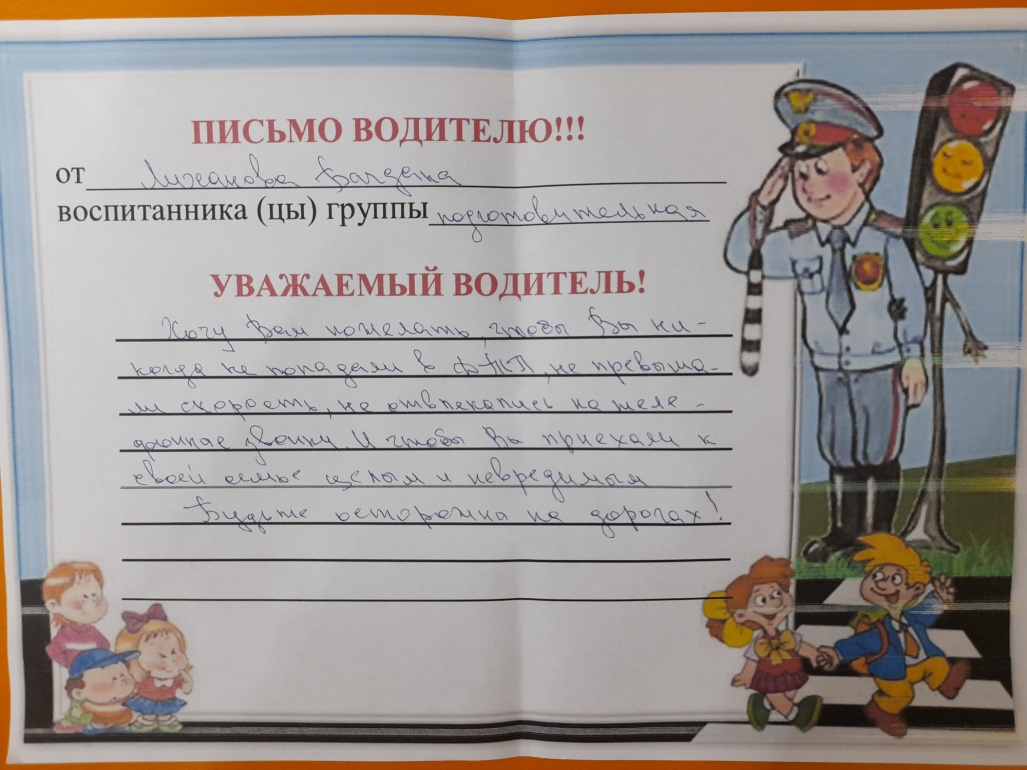 ПИСЬМО ВОДИТЕЛЮ!!!
от
воспитанника (цы) группы подготовительная
УВАЖАЕМЫЙ ВОДИТЕЛЬ!
Хочу Вам пожелать, чтобы Вы ни-
когда не попадали в ДТП, не превыша-
ли скорость, не отвлекались на теле-
фонные звонки. И чтобы Вы приехали к
своей семье целым и невредимым
Будьте осторожны на дорогах!